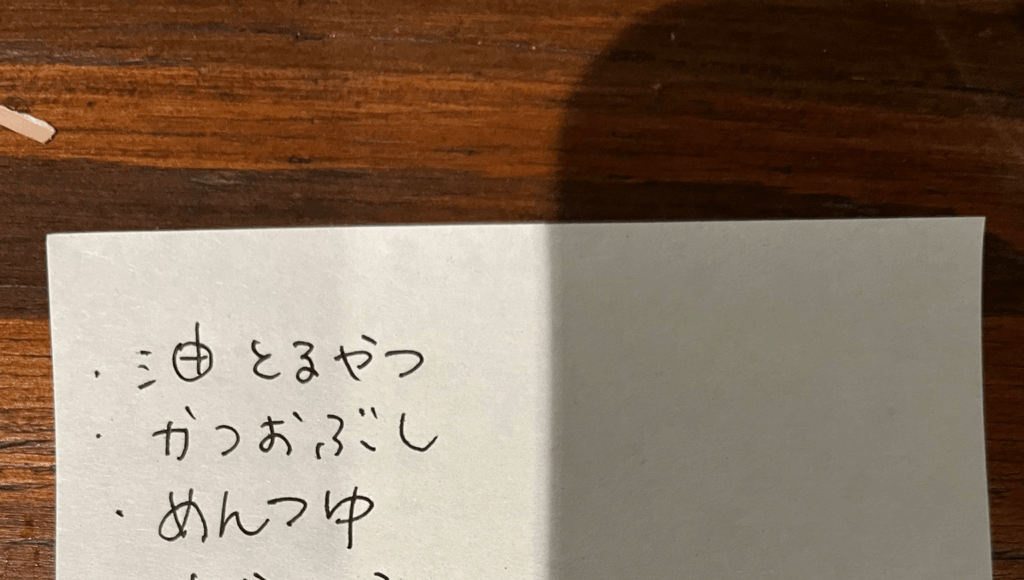 ・油とるやつ
・かつおぶし
・めんつゆ